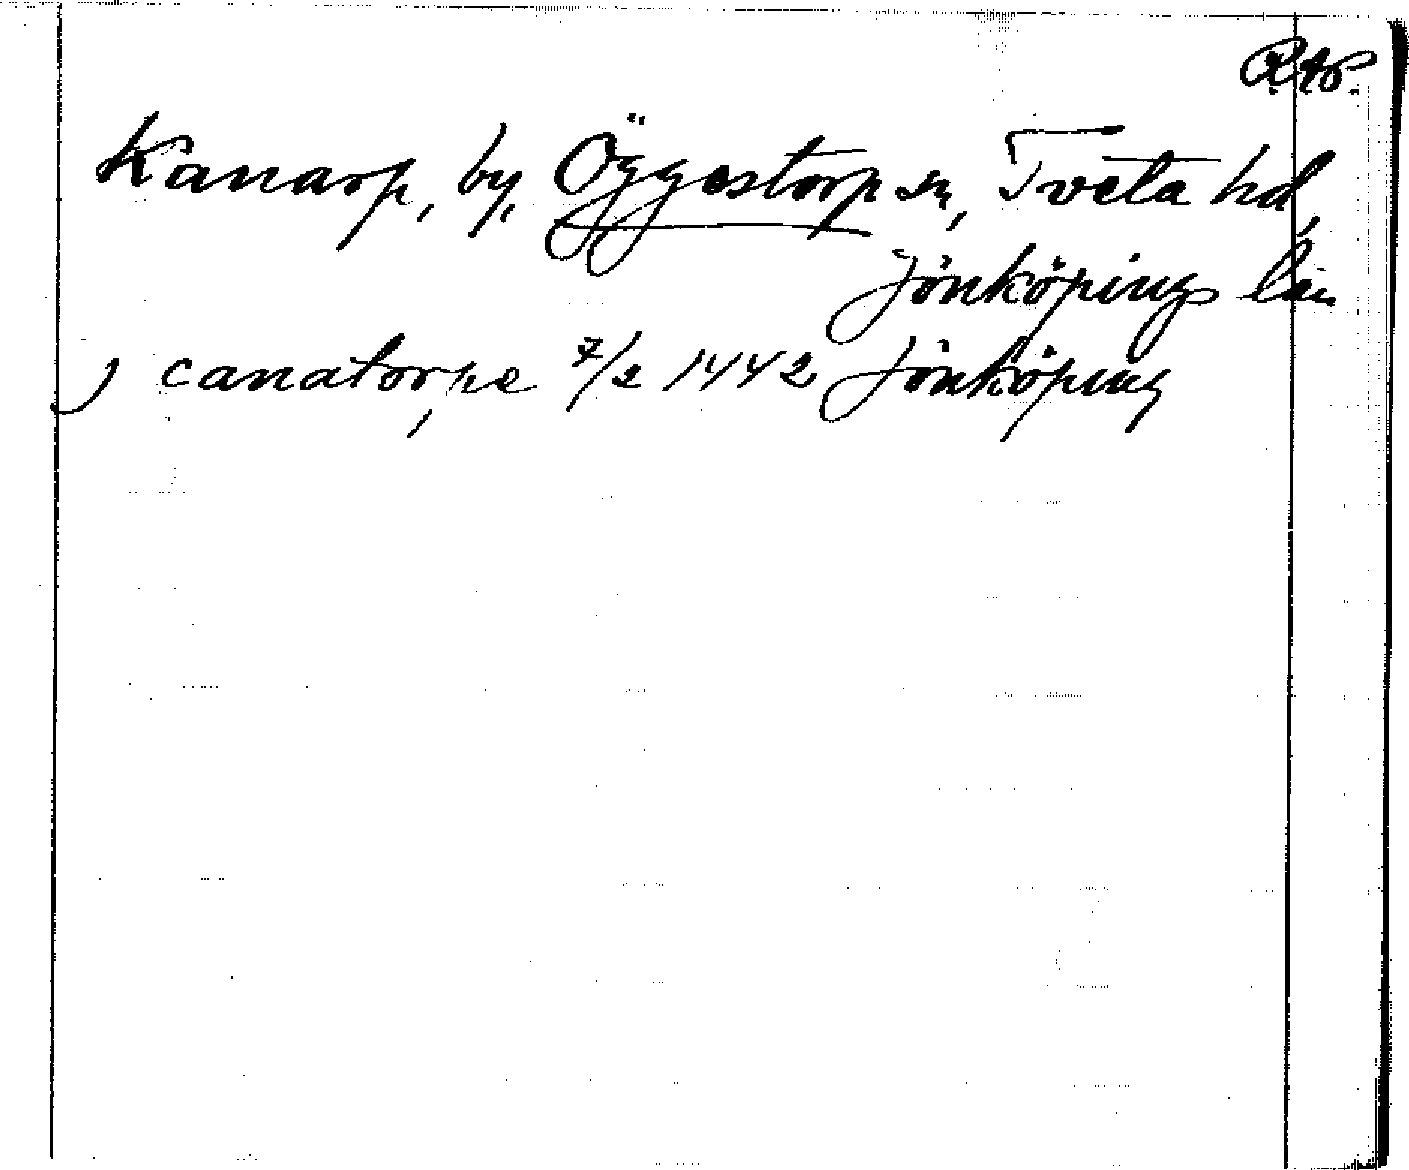 RAP.
Kanarp, by, Öggestorp sn, Tveta hd,
Jönköpings län
) canatorpe 7/2 1442 Jönköping